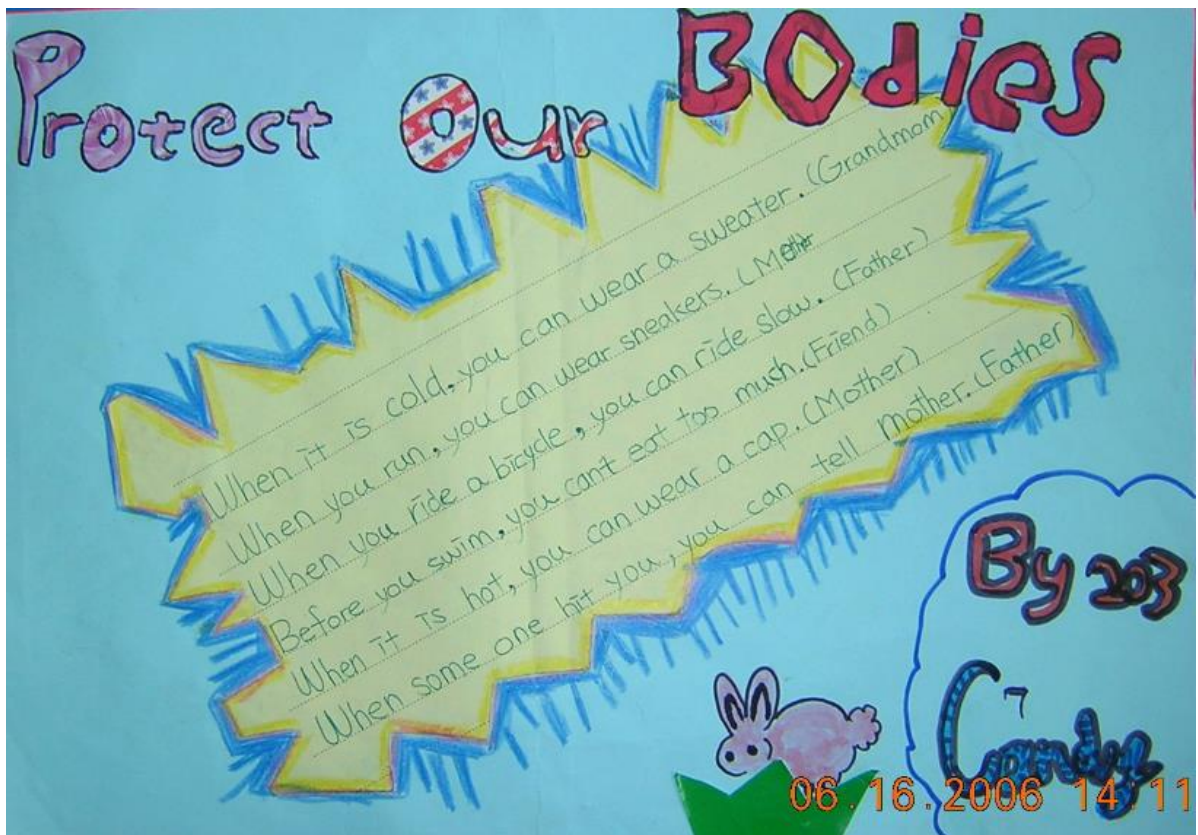 Protect Our BOdies
When it is cold, you can wear a sweater. (Grandmom
When you run, you can wear sneakers. (Mother
When you ride a bicycle, you can ride slow. (Father)
Before you swim, you cant eat too much. (Friend)
When it is hot, you can wear a cap. (Mother)
When some one hit you, you can tell mother. (Father)
By 203
7
Candy
06.16.2006 14:11